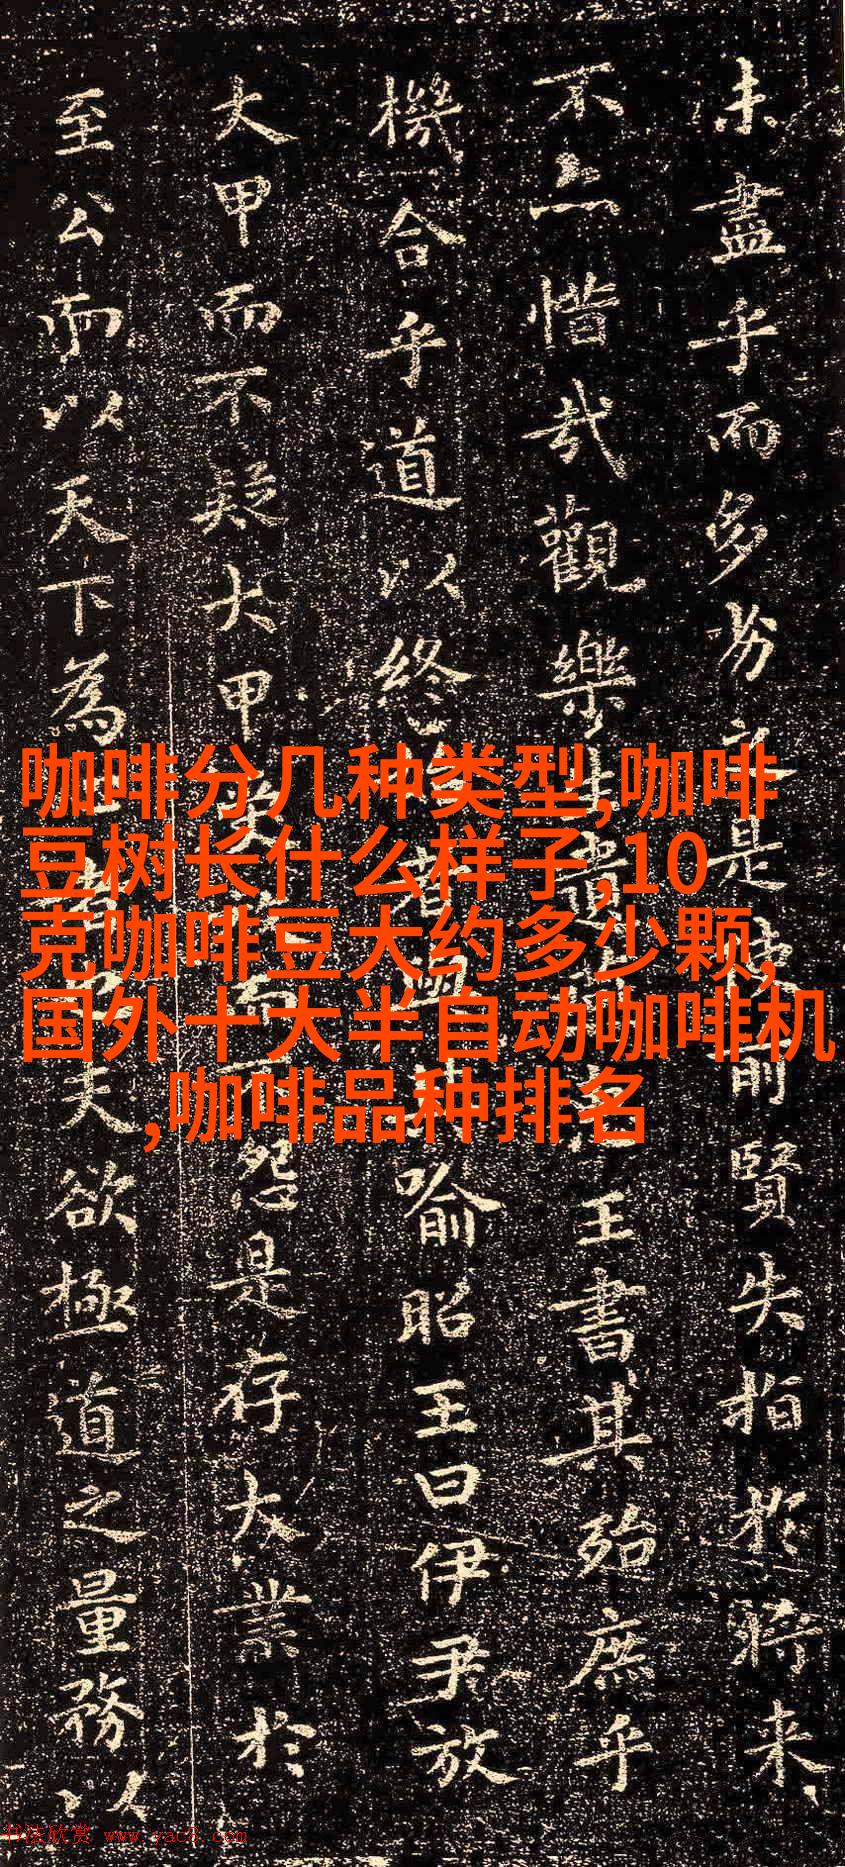 未盡乎而多劣之是使前賢失指於將來
不亦惜哉觀樂生遺燕惠王書其殆庶乎
機合乎道以終始者與其喻昭王曰伊尹放
大甲而不疑大甲受放而不怨是存大業於
至公而以天下為心者也夫欲極道之量務以
咖啡分几种类型,咖啡
豆树长什么样子,10
克咖啡豆大约多少颗,
国外十大半自动咖啡机
,咖啡品种排名
书法欣赏 www.yac8.com